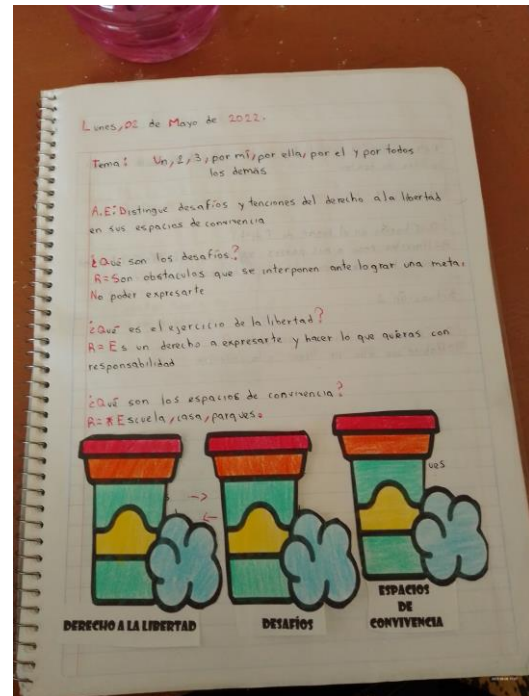 Lunes, 02 de Mayo de 2022.
Tema: Un, 2, 3, por mí, por ella, por el y por todos
los demás
A.E: Distingue desafíos y tenciones del derecho a la libertad
en sus espacios de convivencia
¿Qué son los desafíos?
R= Son obstaculos que se interponen ante lograr una meta.
No poder expresarte
¿Qué es el ejercicio de la libertad?
R= Es un derecho a expresarte y hacer lo que quieras con
responsabilidad
¿Qué son los espacios de convivencia?
R= * Escuela, casa, parques.
ues
DERECHO A LA LIBERTAD
DESAFÍOS
ESPACIOS
DE
CONVIVENCIA